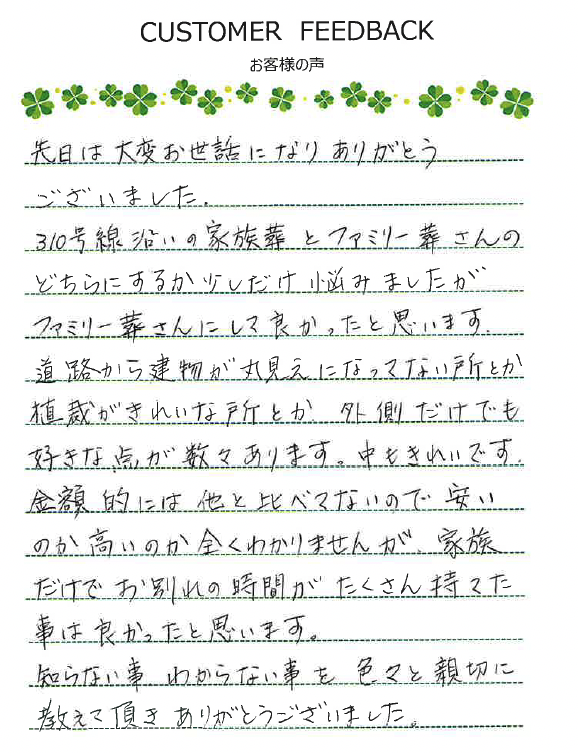 CUSTOMER FEEDBACK
お客様の声
先日は大変お世話になりありがとう
ございました.
310号線沿いの家族葬とファミリー葬さんの
どちらにするか少しだけ悩みましたが
ファミリー葬さんにして良かったと思います.
道路から建物が丸見えになってない所とか
植裁がきれいな所とか、外側だけでも
好きな点が数々あります。中もきれいです.
金額的には他と比べてないので安い
のか高いのか全くわかりませんが、家族
だけでお別れの時間がたくさん持てた
事は良かったと思います。
知らない事わからない事を色々と親切に
教えて頂きありがとうございました。